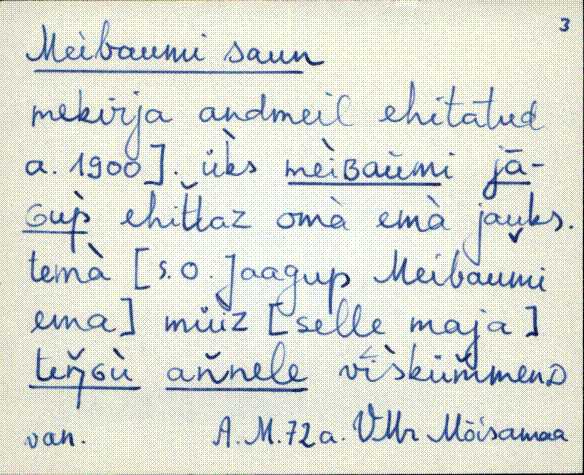 3
Meibaumi saun
mekirja andmeil ehitatud
a. 1900]. üks mèiʙaùmi jā-
ɢùp̀ ehiťťaz omà emà jaùks.
temà [s. o. Jaagup Meibaumi
ema] müüz [selle maja]
teŋ̌ɢù aňnele vìskümmenD
van. A. M. 72 a. VMr Mõisamaa